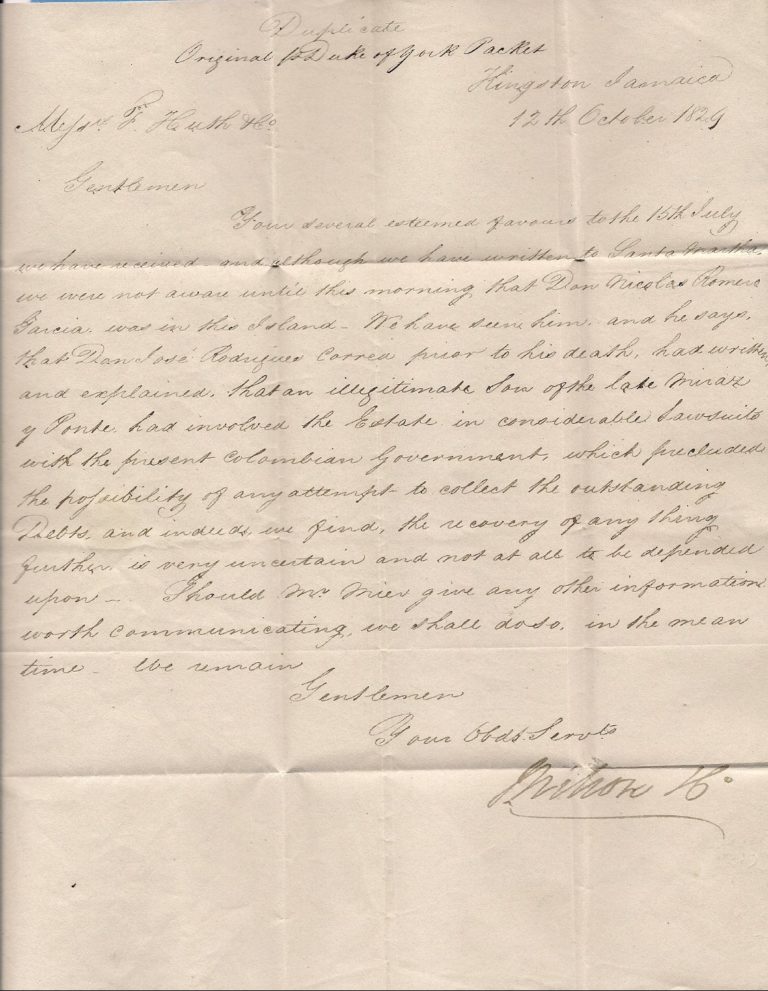 Duplicate
Original p Duke of York Packet
Kingston Jamaica
12th October 1829
Messrs. F. Huth & Co
Gentlemen
Your several esteemed favours to the 15th July
we have received and although we have written to Santa Martha,
we were not aware until this morning that Don Nicolas Romero
Garcia. was in this Island - We have seen him. and he says,
that Don José Rodriguez Correa prior to his death, had written
and explained, that an illegitimate Son of the late
y Ponte. had involved the Estate in considerable Lawsuits
with the present Colombian Government, which precluded
the possibility of any attempt to collect the outstanding
Debts, and indeed, we find, the recovery of any thing
further is very uncertain and not at all to be depended
upon - Should Mr Mier give any other information
worth communicating, we shall do so. in the mean
time - We remain
Gentlemen
Your Obdt Servts
Wilson & Co